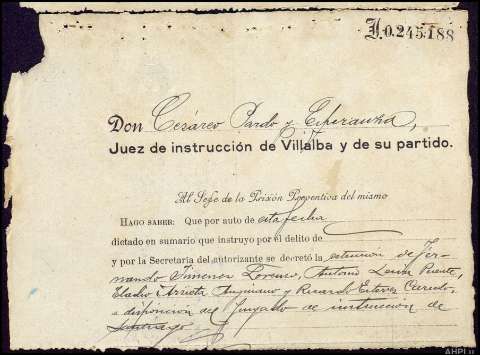 I.0.245.188
Don Cesáreo Pardo y Esperanza,
Juez de instrucción de Villalba y de su partido.
Al Jefe de la Prisión Preventiva del mismo
HAGO SABER: Que por auto de esta fecha
dictado en sumario que instruyo por el delito de
y por la Secretaría del autorizante se decretó la detención de Fer-
nando Jimenez Lorenzo, Antonio Puente,
Eladio Arrieta Anguiano y Ricardo Estevez
a disposición del Juzgado de instrucción de
Santiago
AHPLU